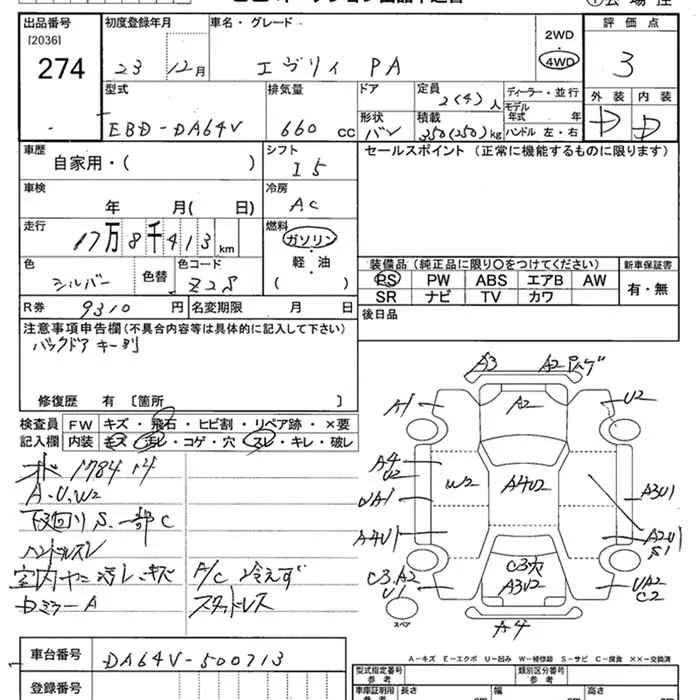 出品番号 初度登録年月 車名・グレード 2WD 評価点
[2036]
274 23 12月 エヴリィ PA 4WD 3
型式 排気量 ドア 定員 ディーラー・並行 外装 内装
2(4)人 モデル年式 年
EBD-DA64V 660 cc 形状 バン 積載 350(250)kg ハンドル 左・右 D D
車歴 自家用・( ) シフト I5 セールスポイント (正常に機能するものに限ります)
車検 年 月( 日) 冷房 AC
走行 17万8千413km 燃料 ガソリン・軽油( )
色 シルバー 色替 色コード Z2S
装備品(純正品に限り○をつけてください) 新車保証書
PS PW ABS エアB AW 有・無
SR ナビ TV カワ
R券 9310円 名変期限 月 日 後日品
注意事項申告欄(不具合内容等は具体的に記入して下さい)
バックドアキー別
修復歴 有〔箇所 〕
検査員 FW キズ・飛石・ヒビ割・リペア跡・×要
記入欄 内装 キズ・汚レ・コゲ・穴・スレ・キレ・破レ
A.U.W2
下回りS.一部C
ハンドルスレ
A/C 冷えず
DミラーA スタッドレス
A3 A2 ハゲ
A1 A2 U2
A4
U2 W2 A4U2
UA1 A3U1
A4U1 A2U1
S1
C3.A2 C3穴 UA2
U1 A3V2 C2
スペア A4
A-キズ E-エクボ U-凹み W-補修跡 S-サビ C-腐食 ××-交換済
車台番号 DA64V-500713
登録番号
型式指定番号 類別区分番号
参考 参考
車庫証明用 長さ cm 幅 cm 高さ cm